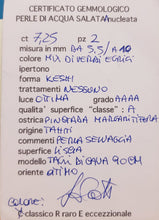 CERTIFICATO GEMMOLOGICO
PERLE DI ACQUA SALATA Anucleata
ct 7,25 pz 2
misura in mm DA 5,5/A 10
colore MIX DI VERDI E GRIGI
ipertono
forma KESHI
trattamenti NESSUNO
luce OTTIMA grado AAAA
qualita' superfice "classe": A
ostrica PINCTADA MARGARITIFERA
origine TAHITI
commento PERLA SELVAGGIA
superfice LISCIA
modello TAGLI DI CAVA 90EM
oriente OTTIMO
colore:
classico R raro E eccezzionale